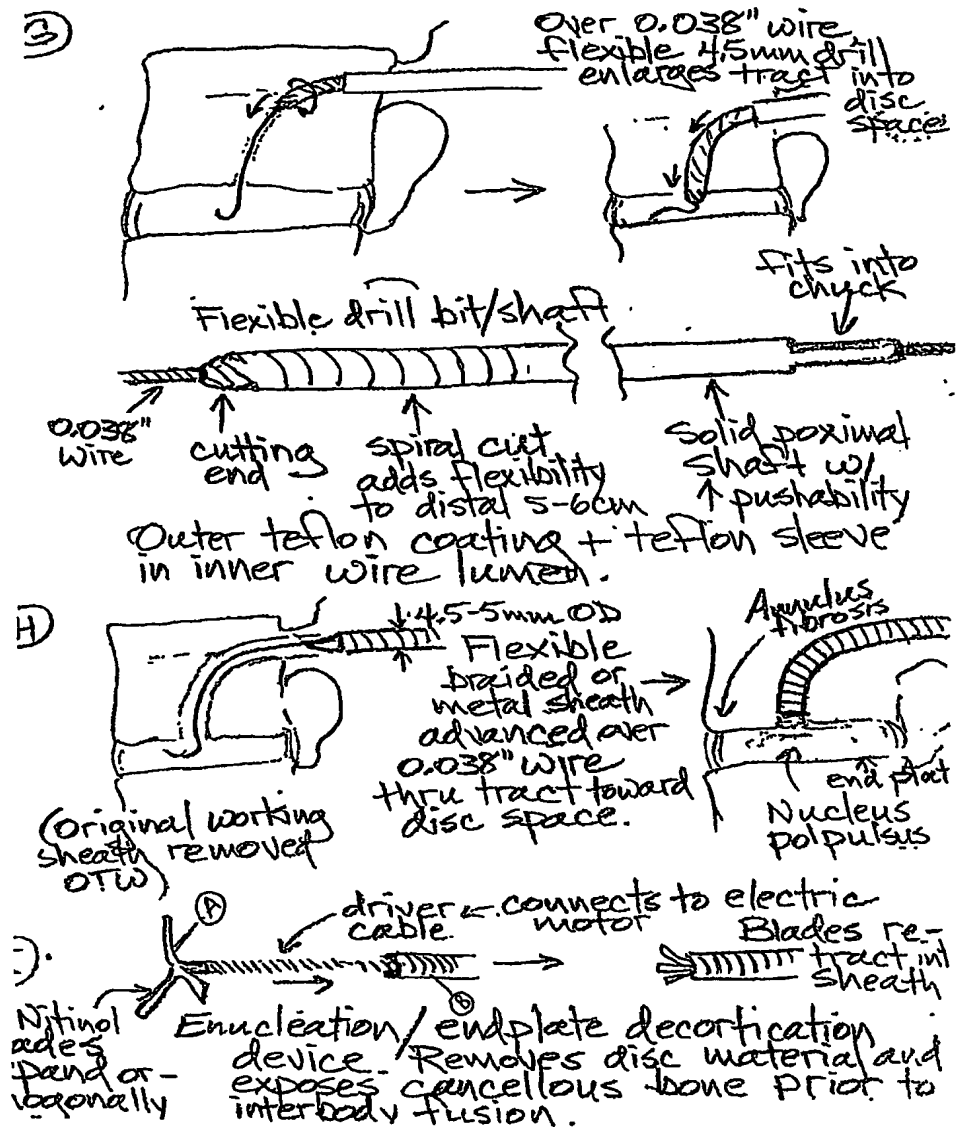 G)
Over 0.038" wire
flexible 4.5mm drill
enlarges tract into
disc
space
Flexible drill bit/shaft
fits into
chuck
0.038"
wire
cutting
end
spiral cut
adds flexibility
to distal 5-6cm
Solid poximal
shaft w/
pushability
Outer teflon coating + teflon sleeve
in inner wire lumen.
H)
4.5-5mm OD
Flexible
braided or
metal sheath
advanced over
0.038" wire
thru tract toward
disc space.
(Original working
sheath removed
OTW)
Annulus
fibrosis
end plat
Nucleus
polpulsus
A
driver
cable
connects to electric
motor
Blades re-
tract int
sheath
B
Nitinol
ades
pand or-
ogonally
Enucleation/endplate decortication
device. Removes disc material and
exposes cancellous bone prior to
interbody fusion.